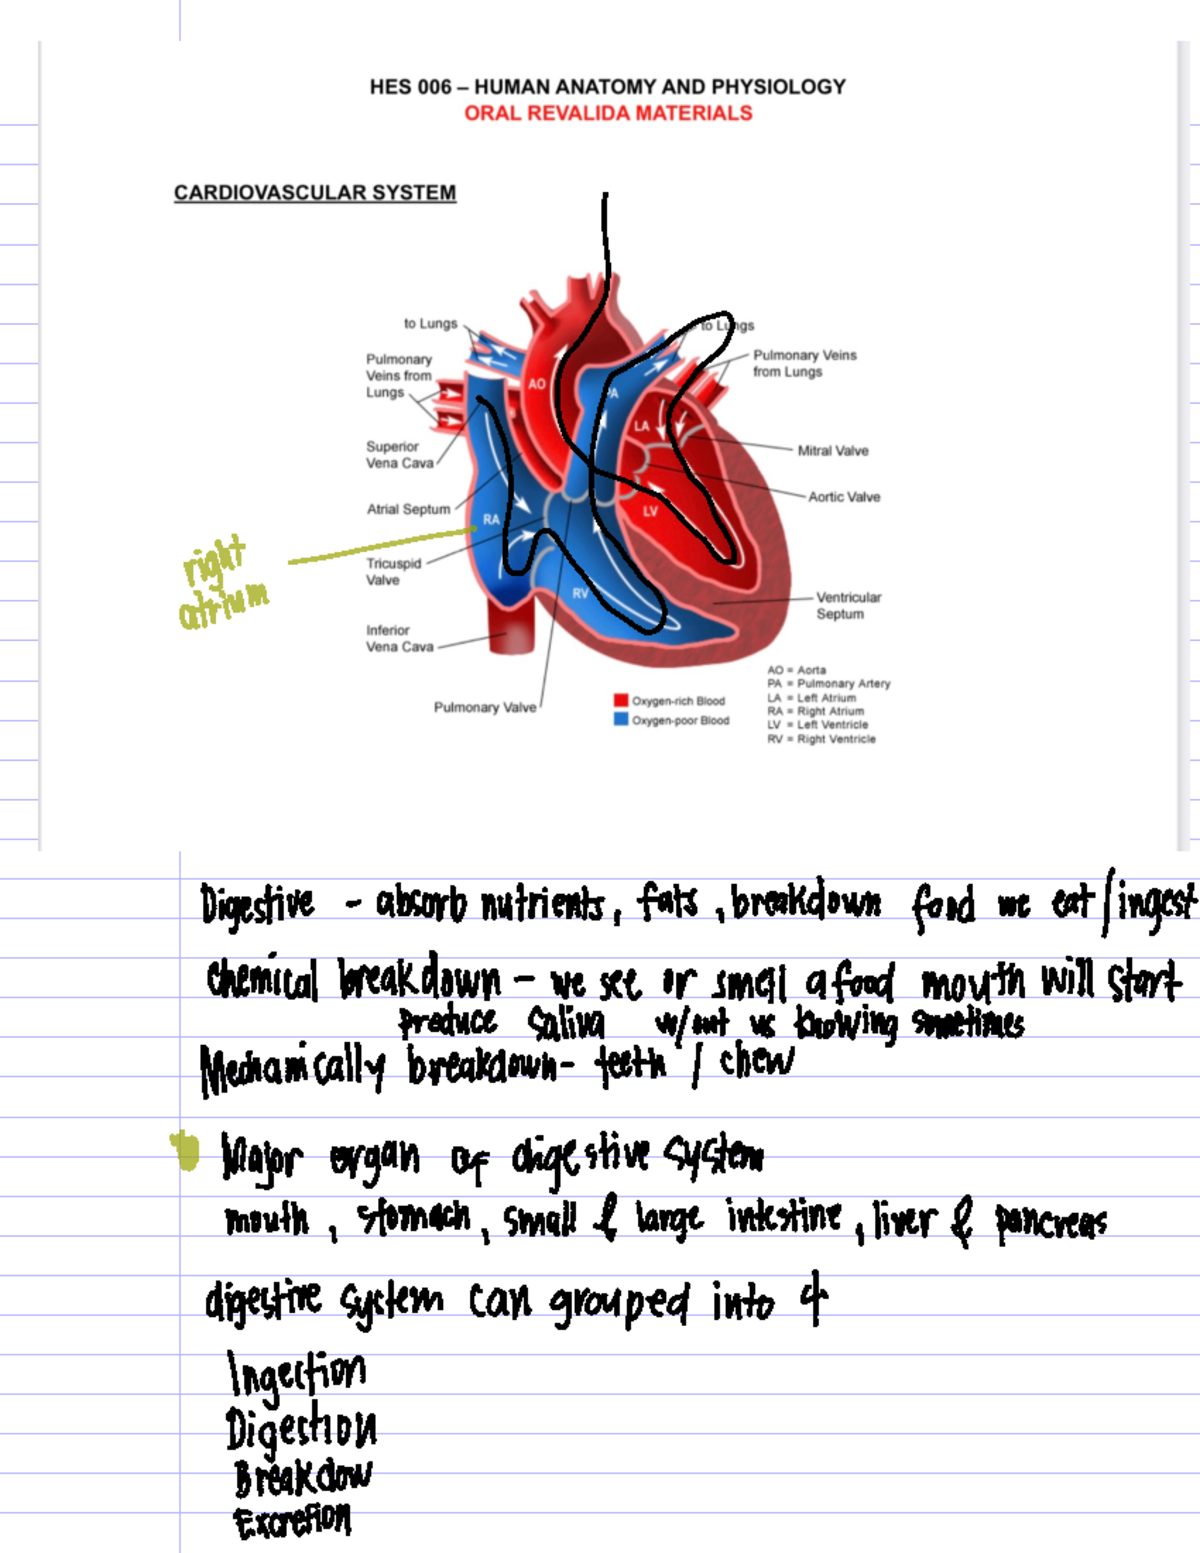 HES 006 – HUMAN ANATOMY AND PHYSIOLOGY
ORAL REVALIDA MATERIALS
CARDIOVASCULAR SYSTEM
to Lungs
Pulmonary
Veins from
Lungs
Superior
Vena Cava
Atrial Septum
Tricuspid
Valve
Inferior
Vena Cava
Pulmonary Valve
right
atrium
AO
PA
LA
RA
LV
RV
to Lungs
Pulmonary Veins
from Lungs
Mitral Valve
Aortic Valve
Ventricular
Septum
Oxygen-rich Blood
Oxygen-poor Blood
AO = Aorta
PA = Pulmonary Artery
LA = Left Atrium
RA = Right Atrium
LV = Left Ventricle
RV = Right Ventricle
Digestive - absorb nutrients, fats, breakdown food we eat/ingest
Chemical breakdown - we see or smell a food mouth will start
produce saliva w/out us knowing sometimes
Mechanically breakdown- teeth / chew
Major organ of digestive system
mouth, stomach, small & large intestine, liver & pancreas
digestive system can grouped into 4
Ingection
Digestion
Breakdow
Excretion